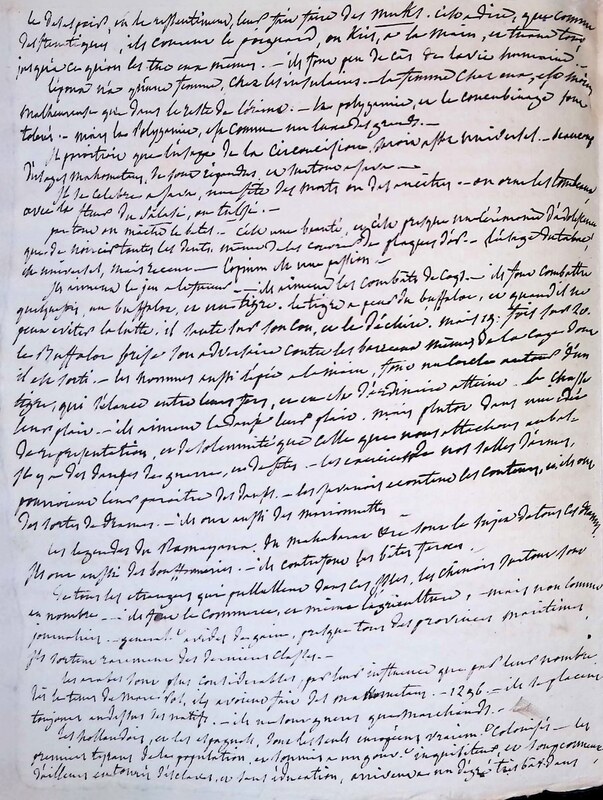 le desespoir, ou le ressentiment, leur fait faire des muks. c'est à dire, que comme
des frenetiques, ils courent le poignard, ou Kris, à la main, et tuent tout
jusqu'à ce qu'on les tue eux memes. - ils font peu de cas de la vie humaine. -
femme, chez les insulaires. - la femme chez eux, est moins
malheureuse que dans le reste de l'orient. - la polygamie, et le concubinage sont
tolerés. - mais la Polygamie, est comme un luxe des grands. -
Il paroitroit que l'usage de la circoncision, seroit assez universel. - beaucoup
d'usages mahometans, se sont repandus, et surtout a java. -
Il se celebre a java, une fête des morts ou des ancêtres. - on orne les tombeaux
avec la fleur du
partout on mâche le betel. - c'est une beauté, et c'est presque une cérémonie d'adolescence
que de noircir toutes les dents, même de les couvrir de plaques d'or. - l'usage du tabac
est universel, mais recent. - l'opium est une passion. -
ils aiment le jeu - ils aiment les combats de coqs. - ils font combattre
quelquefois, un buffaloe, et un tigre. le tigre a peur du buffaloe, et quand il ne
peut eviter la lutte, il saute sur son cou, et le déchire. mais 19. fois sur 20.
le Buffaloe brise son adversaire contre les barreaux mêmes de la cage dont
il est sorti. - les hommes aussi l'épée a la main, font un cercle autour d'un
tigre, qui s'élance entre leurs fers, et en est d'ordinaire atteint. la chasse
leur plait. - ils aiment la danse leur plait, mais plutot dans une idée
de représentation, et de solemnité que celle que nous attachons au bal.
Il y a des danses de guerre, et de fêtes. - les exercices de nos salles d'armes,
pourroient leur paroitre des danses. - les javanois ecoutent les conteurs, et ils ont
des sortes de drames. - ils ont aussi des marionnettes. -
Les legendes du Ramayana, du Mahabarat &c sont le sujet de tous ces drames
Ils ont aussi des bouffonneries. - ils contrefont les bêtes feroces.
De tous les etrangers qui pullullent dans ces isles, les chinois surtout sont
en nombre. - ils font le commerce, et meme l'agriculture, - mais non comme
journaliers. - general.t avides de gain, presque tous des provinces maritimes,
ils sortent rarement des dernieres classes. -
Les arabes sont plus considerables, par leur influence que par leur nombre.
Dès le tems de Marc Pol, ils avoient fait des mahometans. - 1296. - ils se placent
toujours au dessus des natifs. - ils ne sont gueres que marchands. -
Les hollandois, et les espagnols, sont les seuls européens vraim.t colonisés. - les
premiers tyrans de la population, et soumis a un gouv.t inquisiteur, et soupçonneux
d'ailleurs entourés d'esclaves, et sans education, arrivent a un degré très bas dans